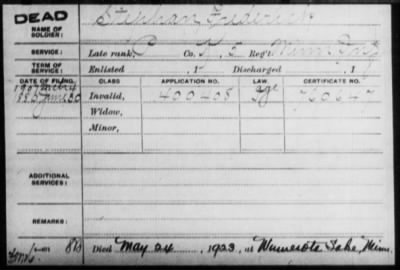 DEAD
NAME OF SOLDIER: Stephan Frederick
SERVICE: Late rank, P Co. E, 5 Reg't Minn Inf
TERM OF SERVICE: Enlisted , 1 Discharged , 1
DATE OF FILING. CLASS APPLICATION NO. LAW. CERTIFICATE NO.
1907 Mch 4 age
1880 June 30 Invalid, 400408 760647
Widow,
Minor,
ADDITIONAL SERVICES:
REMARKS:
Died May 24, 1923, at Lake, Minn.